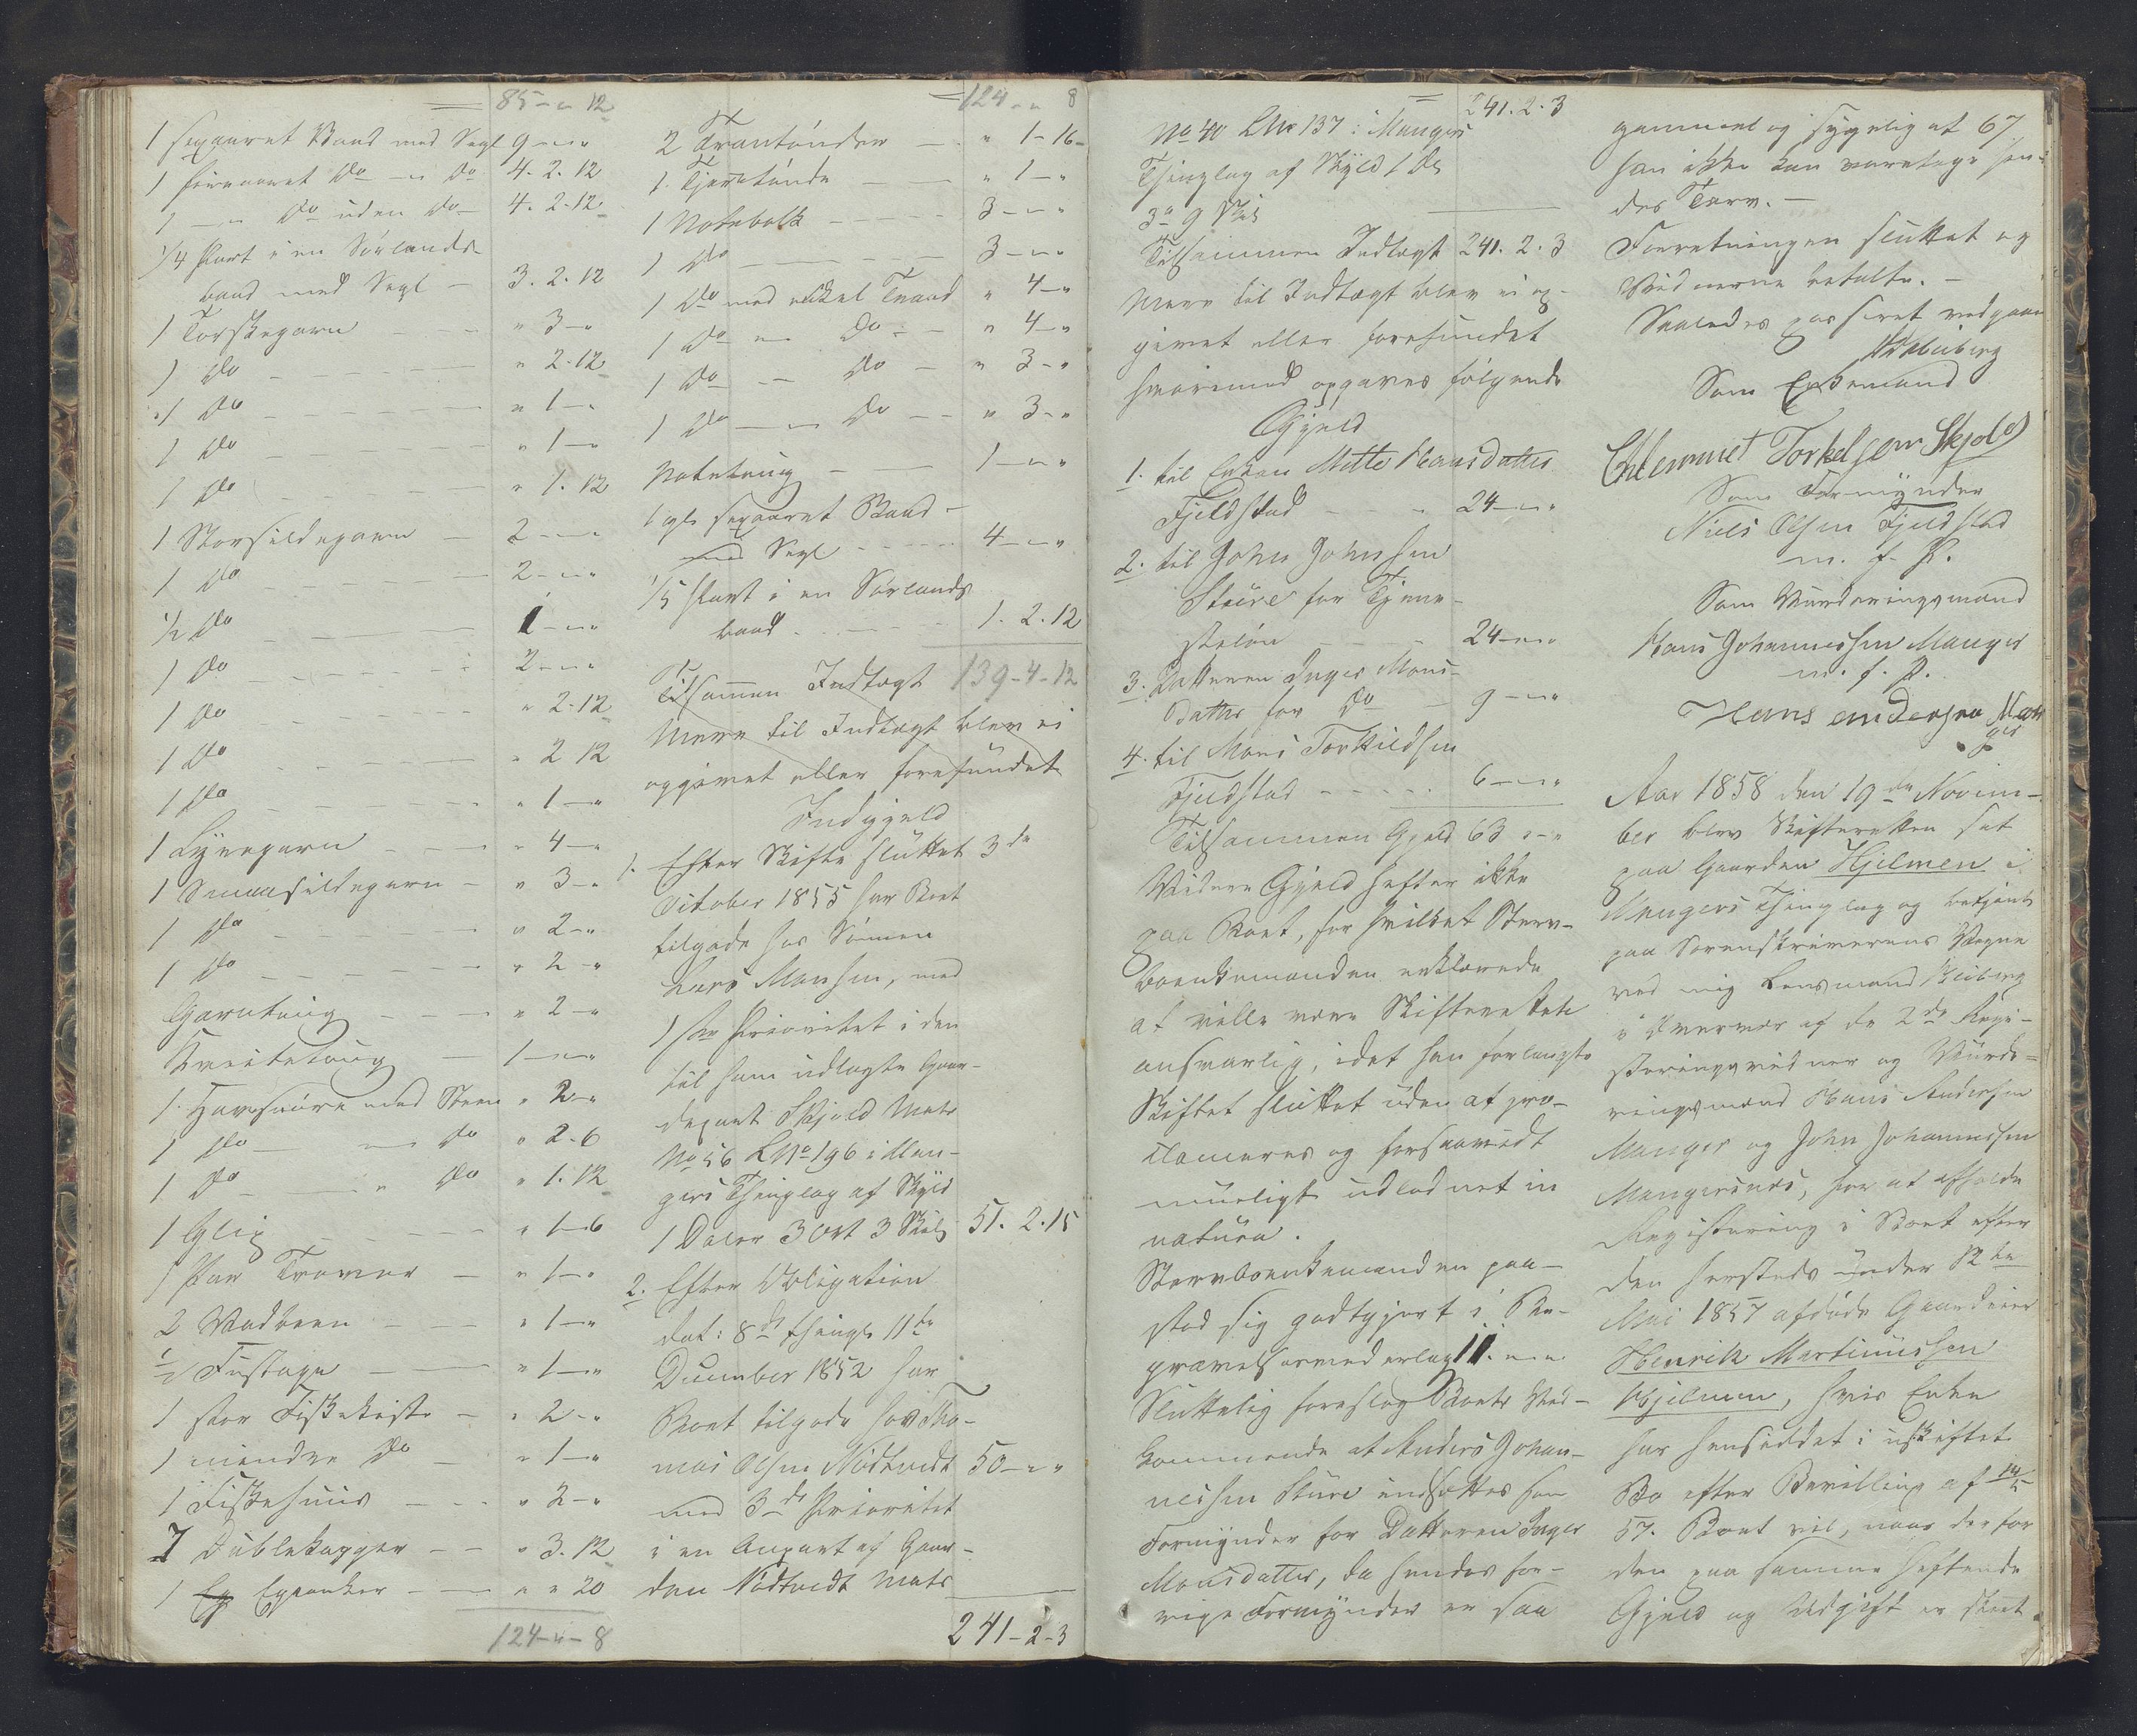 85 - " 12
1 sexaaret Baad med Segl 9 - " - "
1 firaaret Do - " Do 4. 2. 12
1 - " Do uden Do 4. 2. 12
1/4 Part i en Sørlands-
baad med Segl - 3. 2. 12
1 Torskegarn " 3 - "
1 Do " 2. 12
1 Do " 1 - "
1 Do " 1 - "
1 Do " 1. 12
1 Storsildegarn 2 - " - "
1 Do 2 - " - "
1/2 Do 1 - " - "
1 Do 2 - " - "
1 Do " 2. 12
1 Do " 2 12
1 Do " 1 - "
1 Lynegarn " 4 - "
1 Smaasildegarn " 3 - "
1 Do " 2 - "
1 Do " 2 - "
Garntoug " 2 - "
1 - " - "
1 Havsnøre med Steen " 2 - "
1 Do - " Do " 2. 6
1 Do - " Do " 1. 12
1 Glip " 1 - 6
1 Par Trover " 1 - "
2 Vadbeen " 1 - "
1/2 Fustage " 1 - "
1 stor Fiskekiste " 2 - "
1 mindre Do " 1 - "
1 Fiskehuus " 2 - "
7 Dublekagger " 3. 12
1 " " 20
124 - " - 8
124 - " 8
2 Trantønder " 1 - 16
1 Tjeretønde " 1 - "
1 Notebolk 3 - " - "
1 Do 3 - " - "
1 Do med enkel Traad " 4 - "
1 Do - " Do " 4 - "
1 Do - " Do " 3 - "
1 Do - " Do " 3 - "
Notetoug 1 - " - "
1 gl. sexaaret Baad -
med Segl 4 - " - "
1/5 Part i en Sørlands
baad 1. 2. 12
Tilsammen Indtægt 139 - 4 - 12
Mere til Indtægt blev ei
opgivet eller forefundet
Indgjeld
1. Efter Skifte sluttet 3de
October 1855 har Boet
tilgode hos Sønnen
Lars Monsen, med
1ste Prioritet i den
til ham udlagte Gaar-
depart Skjold Matr
No 56 LNo 196 i Man-
gers Thinglag af Skyld
1 Daler 3 Ort 3 Skil 51. 2. 15
2. Efter Obligation
dat: 8de thingl. 11te
December 1852 har
Boet tilgode hos Tho-
mas Olsen Nødtvedt 50 - " - "
med 3de Prioritet
i en Anpart af Gaar-
den Nødtvedt Matr
241 - 2 - 3
241. 2. 3
No 40 LNo 137 i Mangers
Thinglag af Skyld 1 Dr
3 O 9 Skil
Tilsammen Indtægt 241. 2. 3
Mere til Indtægt blev ei op-
givet eller forefundet
hvorimod opgaves følgende
Gjeld
1. til Enken Mette Hansdatter
Fjeldstad 24 - " - "
2. til John Johnsen
Sture for Tjene-
steløn 24 - " - "
3. Datteren Inger Mons-
datter for Do 9 - " - "
4. til Mons Torkildsen
Fjeldstad 6 - " - "
Tilsammen Gjeld 63 - " - "
Videre Gjeld hefter ikke
paa Boet, for hvilket Sterv-
boenkemanden erklærede
at ville være Skifteretten
ansvarlig, idet han forlangte
Skiftet sluttet uden at pro-
clameres og forsaavidt
mueligt udlodnet in
natura.
Stervboenkemanden paa-
stod sig godtgjort i Be-
11. - " - "
Sluttelig foreslog Boets Ved-
kommende at Anders Johan-
nessen Sture indsættes som
Formynder for Datteren Inger
Monsdatter, da hendes for-
rige Formynder er saa
gammel og sygelig at
han ikke kan varetage hen-
des Tarv. -
Forretningen sluttet og
Vidnerne betalte. -
Saaledes passeret vedgaaer
Som Enkemand
Torkelsen Skjold
Som Formynder
Niels Olsen Fjeldstad
m. f. P.
Som Vurderingsmænd
Hans Johannessen Manger
m. f. P.
Hans andersen Man
ger
Aar 1858 den 19de Novem-
ber blev Skifteretten sat
paa Gaarden Hjelmen i
Mangers Thinglag og betjent
paa Sorenskriverens Vegne
ved mig Lensmand Heiberg
i Overvær af de 2de Regi-
streringsvidner og Vurde-
ringsmænd Hans Andersen
Manger og John Johannessen
Mangersnæs, for at afholde
Registrering i Boet efter
den hersteds under 12te
Mai 1857 afdøde Gaardeier
Henrik Martinussen
Hjelmen, hvis Enke
har hensiddet i uskiftet
Bo efter Bevilling af
57. Boet vil, naar der for
den paa samme heftende
Gjeld og Udgift er skeet